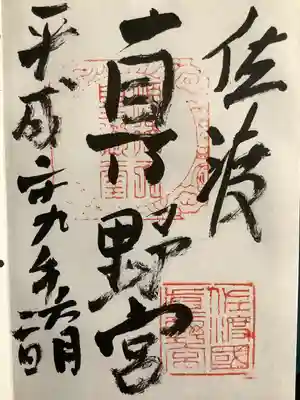 佐渡
真野宮
平成廿九年六月
佐渡國
真野宮